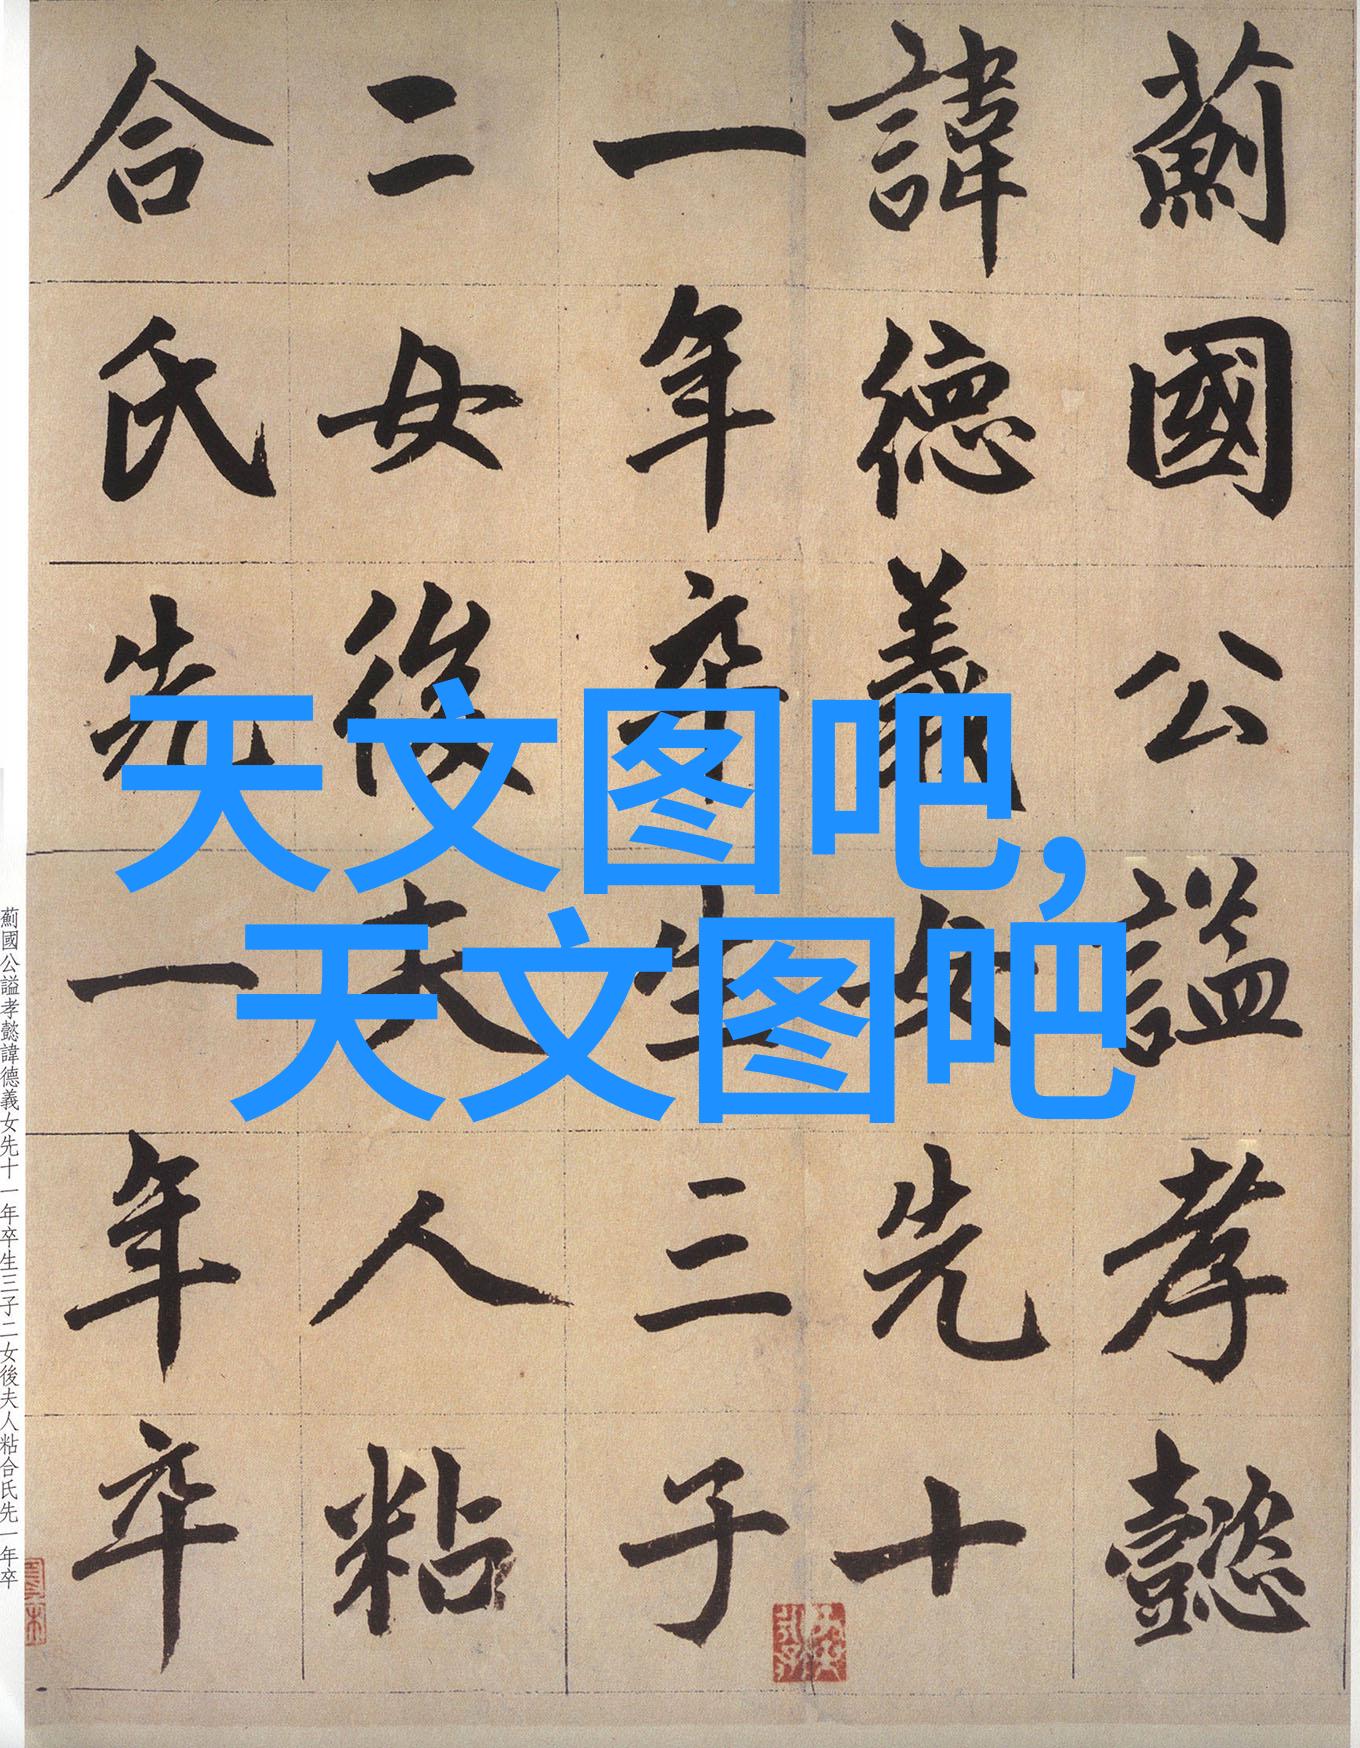 薊國公謚孝懿
諱德義女先十
一年卒生三子
二女後夫人粘
合氏先一年卒
天文图吧,
天文图吧
薊國公謚孝懿諱德義女先十一年卒生三子二女後夫人粘合氏先一年卒